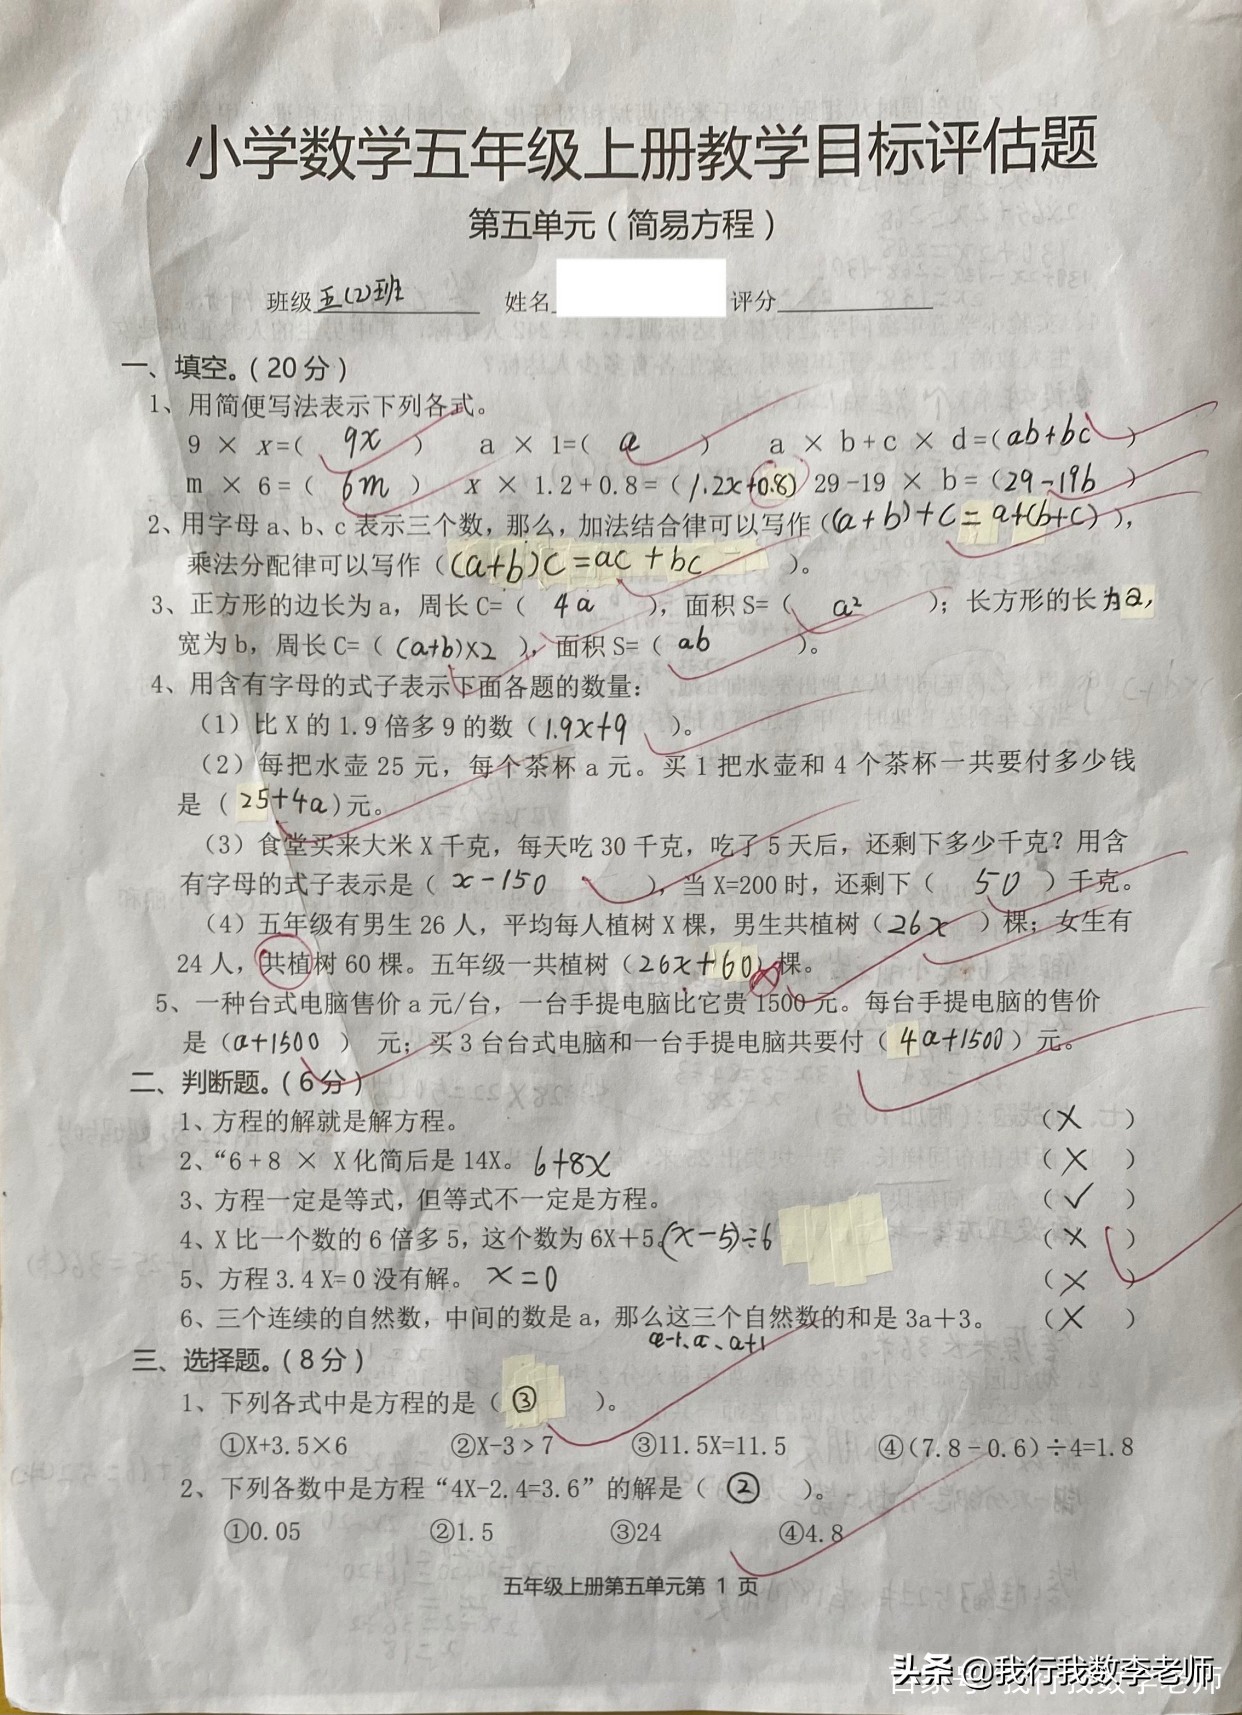 小学数学五年级上册教学目标评估题
第五单元（简易方程）
班级 五(2)班 姓名 评分
一、填空。（20分）
1、用简便写法表示下列各式。
9 × x=（ 9x ） a × 1=（ a ） a × b+c × d=（ab+bc ）
m × 6=（ 6m ） x × 1.2+0.8=（1.2x+0.8） 29-19 × b=（29-19b ）
2、用字母a、b、c表示三个数，那么，加法结合律可以写作（(a+b)+c=a+(b+c)），
乘法分配律可以写作（(a+b)c=ac+bc ）。
3、正方形的边长为a，周长C=（ 4a ），面积S=（ a² ）；长方形的长为a，
宽为b，周长C=（ (a+b)×2 ），面积S=（ ab ）。
4、用含有字母的式子表示下面各题的数量：
（1）比X的1.9倍多9的数（1.9x+9 ）。
（2）每把水壶25元，每个茶杯a元。买1把水壶和4个茶杯一共要付多少钱
是（ 25+4a ）元。
（3）食堂买来大米X千克，每天吃30千克，吃了5天后，还剩下多少千克？用含
有字母的式子表示是（ x-150 ），当X=200时，还剩下（ 50 ）千克。
（4）五年级有男生26人，平均每人植树X棵，男生共植树（26x ）棵；女生有
24人，共植树60棵。五年级一共植树（26x+60）棵。
5、一种台式电脑售价a元/台，一台手提电脑比它贵1500元。每台手提电脑的售价
是（a+1500 ） 元；买3台台式电脑和一台手提电脑共要付（ 4a+1500 ）元。
二、判断题。（6分）
1、方程的解就是解方程。 （×）
2、“6+8 × X化简后是14X。 6+8x （×）
3、方程一定是等式，但等式不一定是方程。 （✓）
4、X比一个数的6倍多5，这个数为6X+5.(x-5)÷6 （×）
5、方程3.4X=0没有解。 x=0 （×）
6、三个连续的自然数，中间的数是a，那么这三个自然数的和是3a+3。 （×）
a-1、a、a+1
三、选择题。（8分）
1、下列各式中是方程的是（ ③ ）。
①X+3.5×6 ②X-3>7 ③11.5X=11.5 ④(7.8-0.6)÷4=1.8
2、下列各数中是方程“4X-2.4=3.6”的解是（ ② ）。
①0.05 ②1.5 ③24 ④4.8
五年级上册第五单元第 1 页
头条 @我行我数李老师